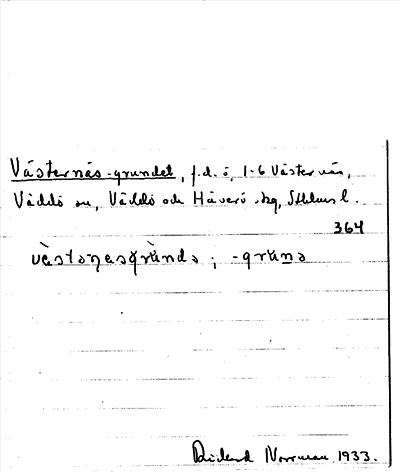 Västernäs-grundet, f.d. ö, 1-6 Västernäs,
Väddö sn, Väddö och Häverö skg, Sthlms l.
364
væ̀stəɳesgrʉ̀ndə ; -grʉ̀nə
Rickard Norrman, 1933.